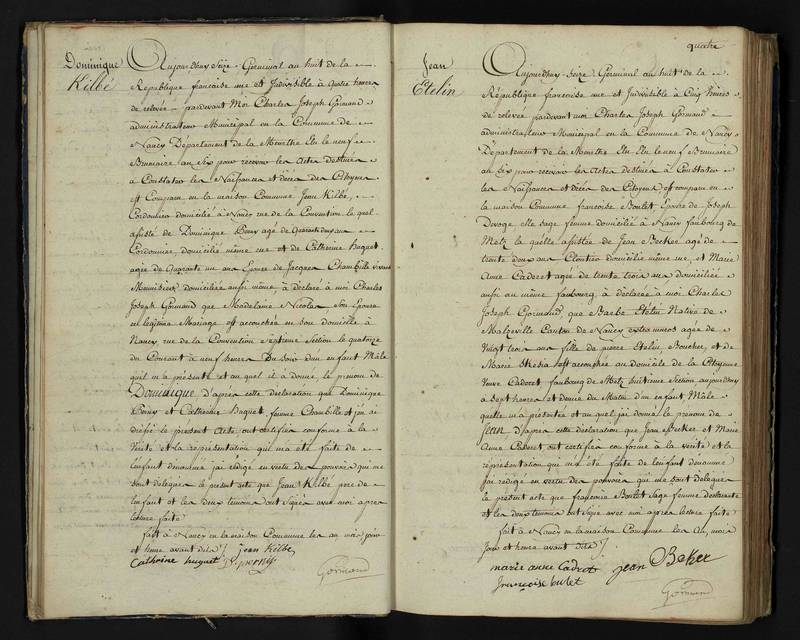 Dominique
Kilbé
Aujourdhuy Seize Germinal an huit de la
République francoise une et Indivisible à quatre heures
de relevée pardevant Moi Charles Joseph Gormand
administrateur Municipal en la Commune de
Nancy Département de la Meurthe Elu le neuf
Brumaire an Six pour recevoir les Actes destinés
à Constater les Naissances et décès des Citoyens
est Comparu en la maison Commune Jean Kilbé,
Cordonnier domicilié à Nancy rue de la Convention le quel
assisté de Dominique agé de quarante
Cordonnier, domicilié même rue et de Catherine Huguet
agée de quarante un ans Epouse de Jacques Chambille
Menuisier domiciliée aussi même, à déclaré à moi Charles
Joseph Gormand que Magdelaine Nicolas son Epouse
en légitime Mariage est accouchée en son domicile à
Nancy rue de la Convention Septieme Section le quatorze
du Courant à neuf heures Du Soir dun enfant Mâle
quil m'a présenté et au quel il à donné le prenom de
Dominique. D'apres cette déclaration que Dominique
et Catherine Huguet femme Chambille
le présent Acte ont certifiée conforme à la
Vérité et la représentation qui ma été faite de
l'enfant denommé j'ai rédigé en vertu des pouvoirs qui me
sont délégués le présent acte que Jean Kilbé pere de
lenfant et les deux temoins ont Signés avec moi apres
lecture faite
fait à Nancy en la maison Commune les an mois jour
et heure avant dits
jean Kilbe
Cathrine huguet
Gormand
quatre
Jean
Etelin
Aujourdhuy Seize Germinal an huit de la
République francoise une et Indivisible à Cinq heures
de relevée pardevant moi Charles Joseph Gormand
administrateur Municipal en la Commune de Nancy
Département de la Meurthe Elu le neuf Brumaire
an Six pour recevoir les Actes destinés à Constater
les Naissances et décès des Citoyens, est comparu en
la maison Commune francoise Boulet Epouse de Joseph
Devoge elle sage femme domiciliée à Nancy faubourg de
Metz la quelle assistée de Jean Becker agé de
trente deux ans domicilié même rue, et Marie
Anne Cadoret agée de trente trois ans domiciliée
aussi au même faubourg à déclarée à moi Charles
Joseph Gormand, que Barbe Etelin Native de
Malzéville Canton de Nancy extra muros agée de
Vingt trois ans fille de pierre Etelin, Boucher, et de
Marie est accouchée au domicile de la Citoyenne
Veuve Cadoret faubourg de Metz huitieme Section aujourdhuy
à Sept heures et demie du Matin d'un enfant Mâle
quelle m'a présenté et au quel jai donné le prenom de
Jean D'apres cette déclaration que Jean Becker et Marie
Anne Cadoret ont certifiée conforme à la Vérité et la
représentation qui m'a été faite de lenfant denommé
jai redigé en vertu des pouvoirs qui me sont délégués
le présent acte que francoise Boulet Sage femme declarante
et les deux temoins ont Signé avec moi apres lecture faite
fait à Nancy en la maison Commune les an, mois
Jour et heure avant dits
marie anne Cadret jean Beker
françoise bulet
Gormand